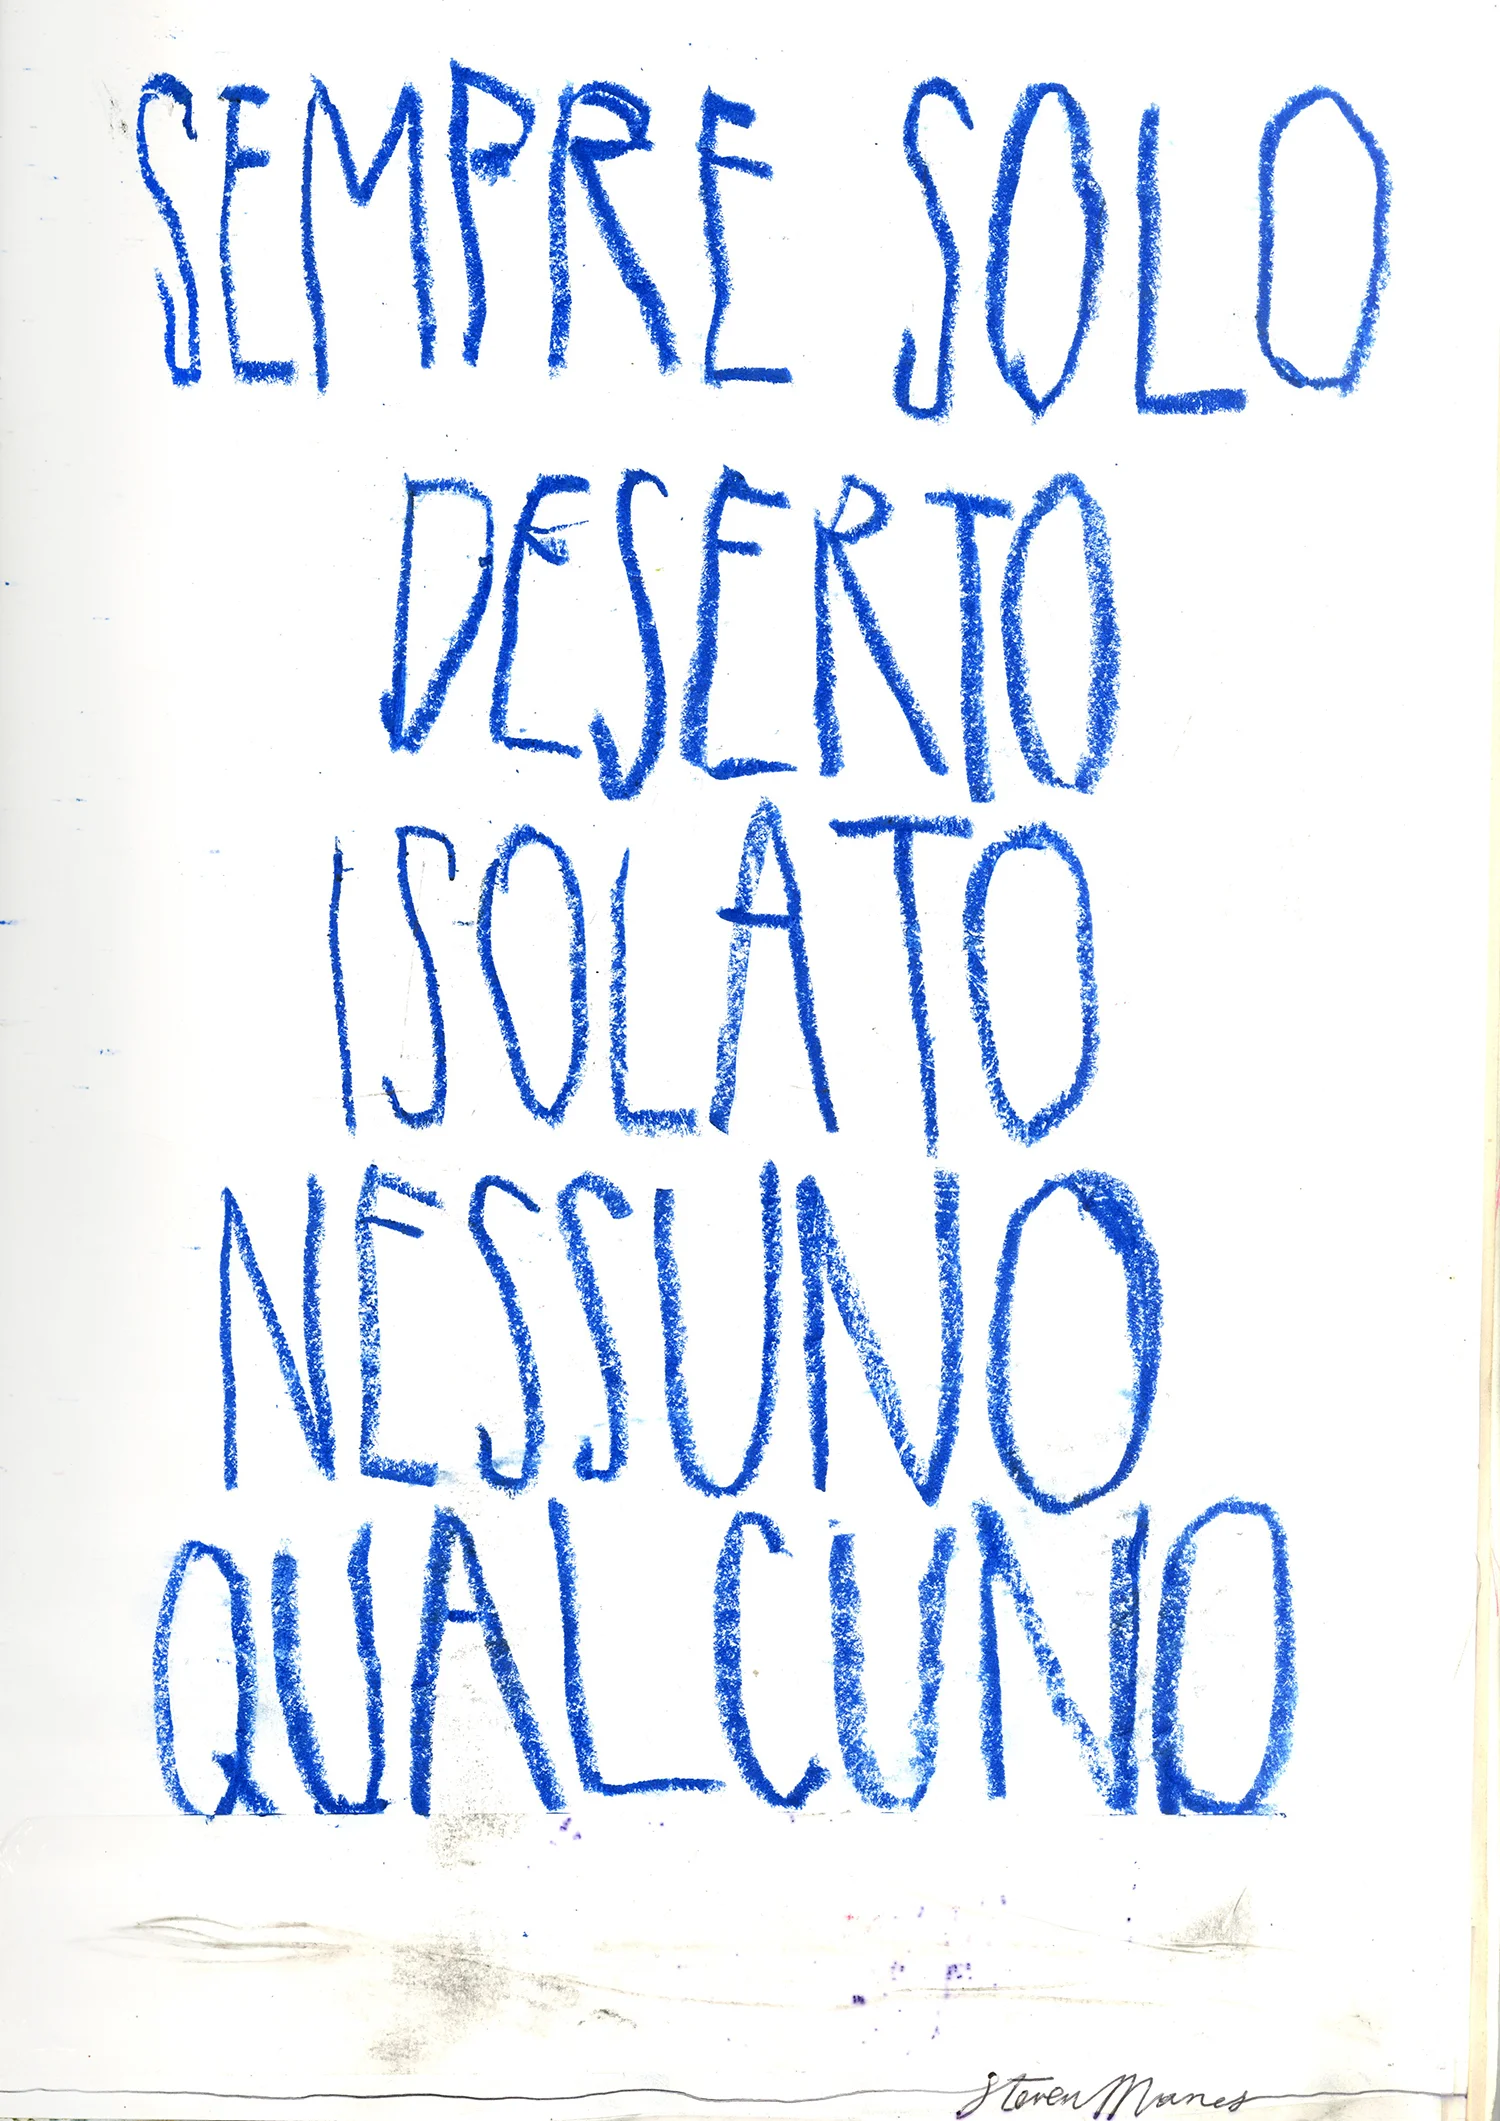 SEMPRE SOLO
DESERTO
ISOLATO
NESSUNO
QUALCUNO
Steven Manes